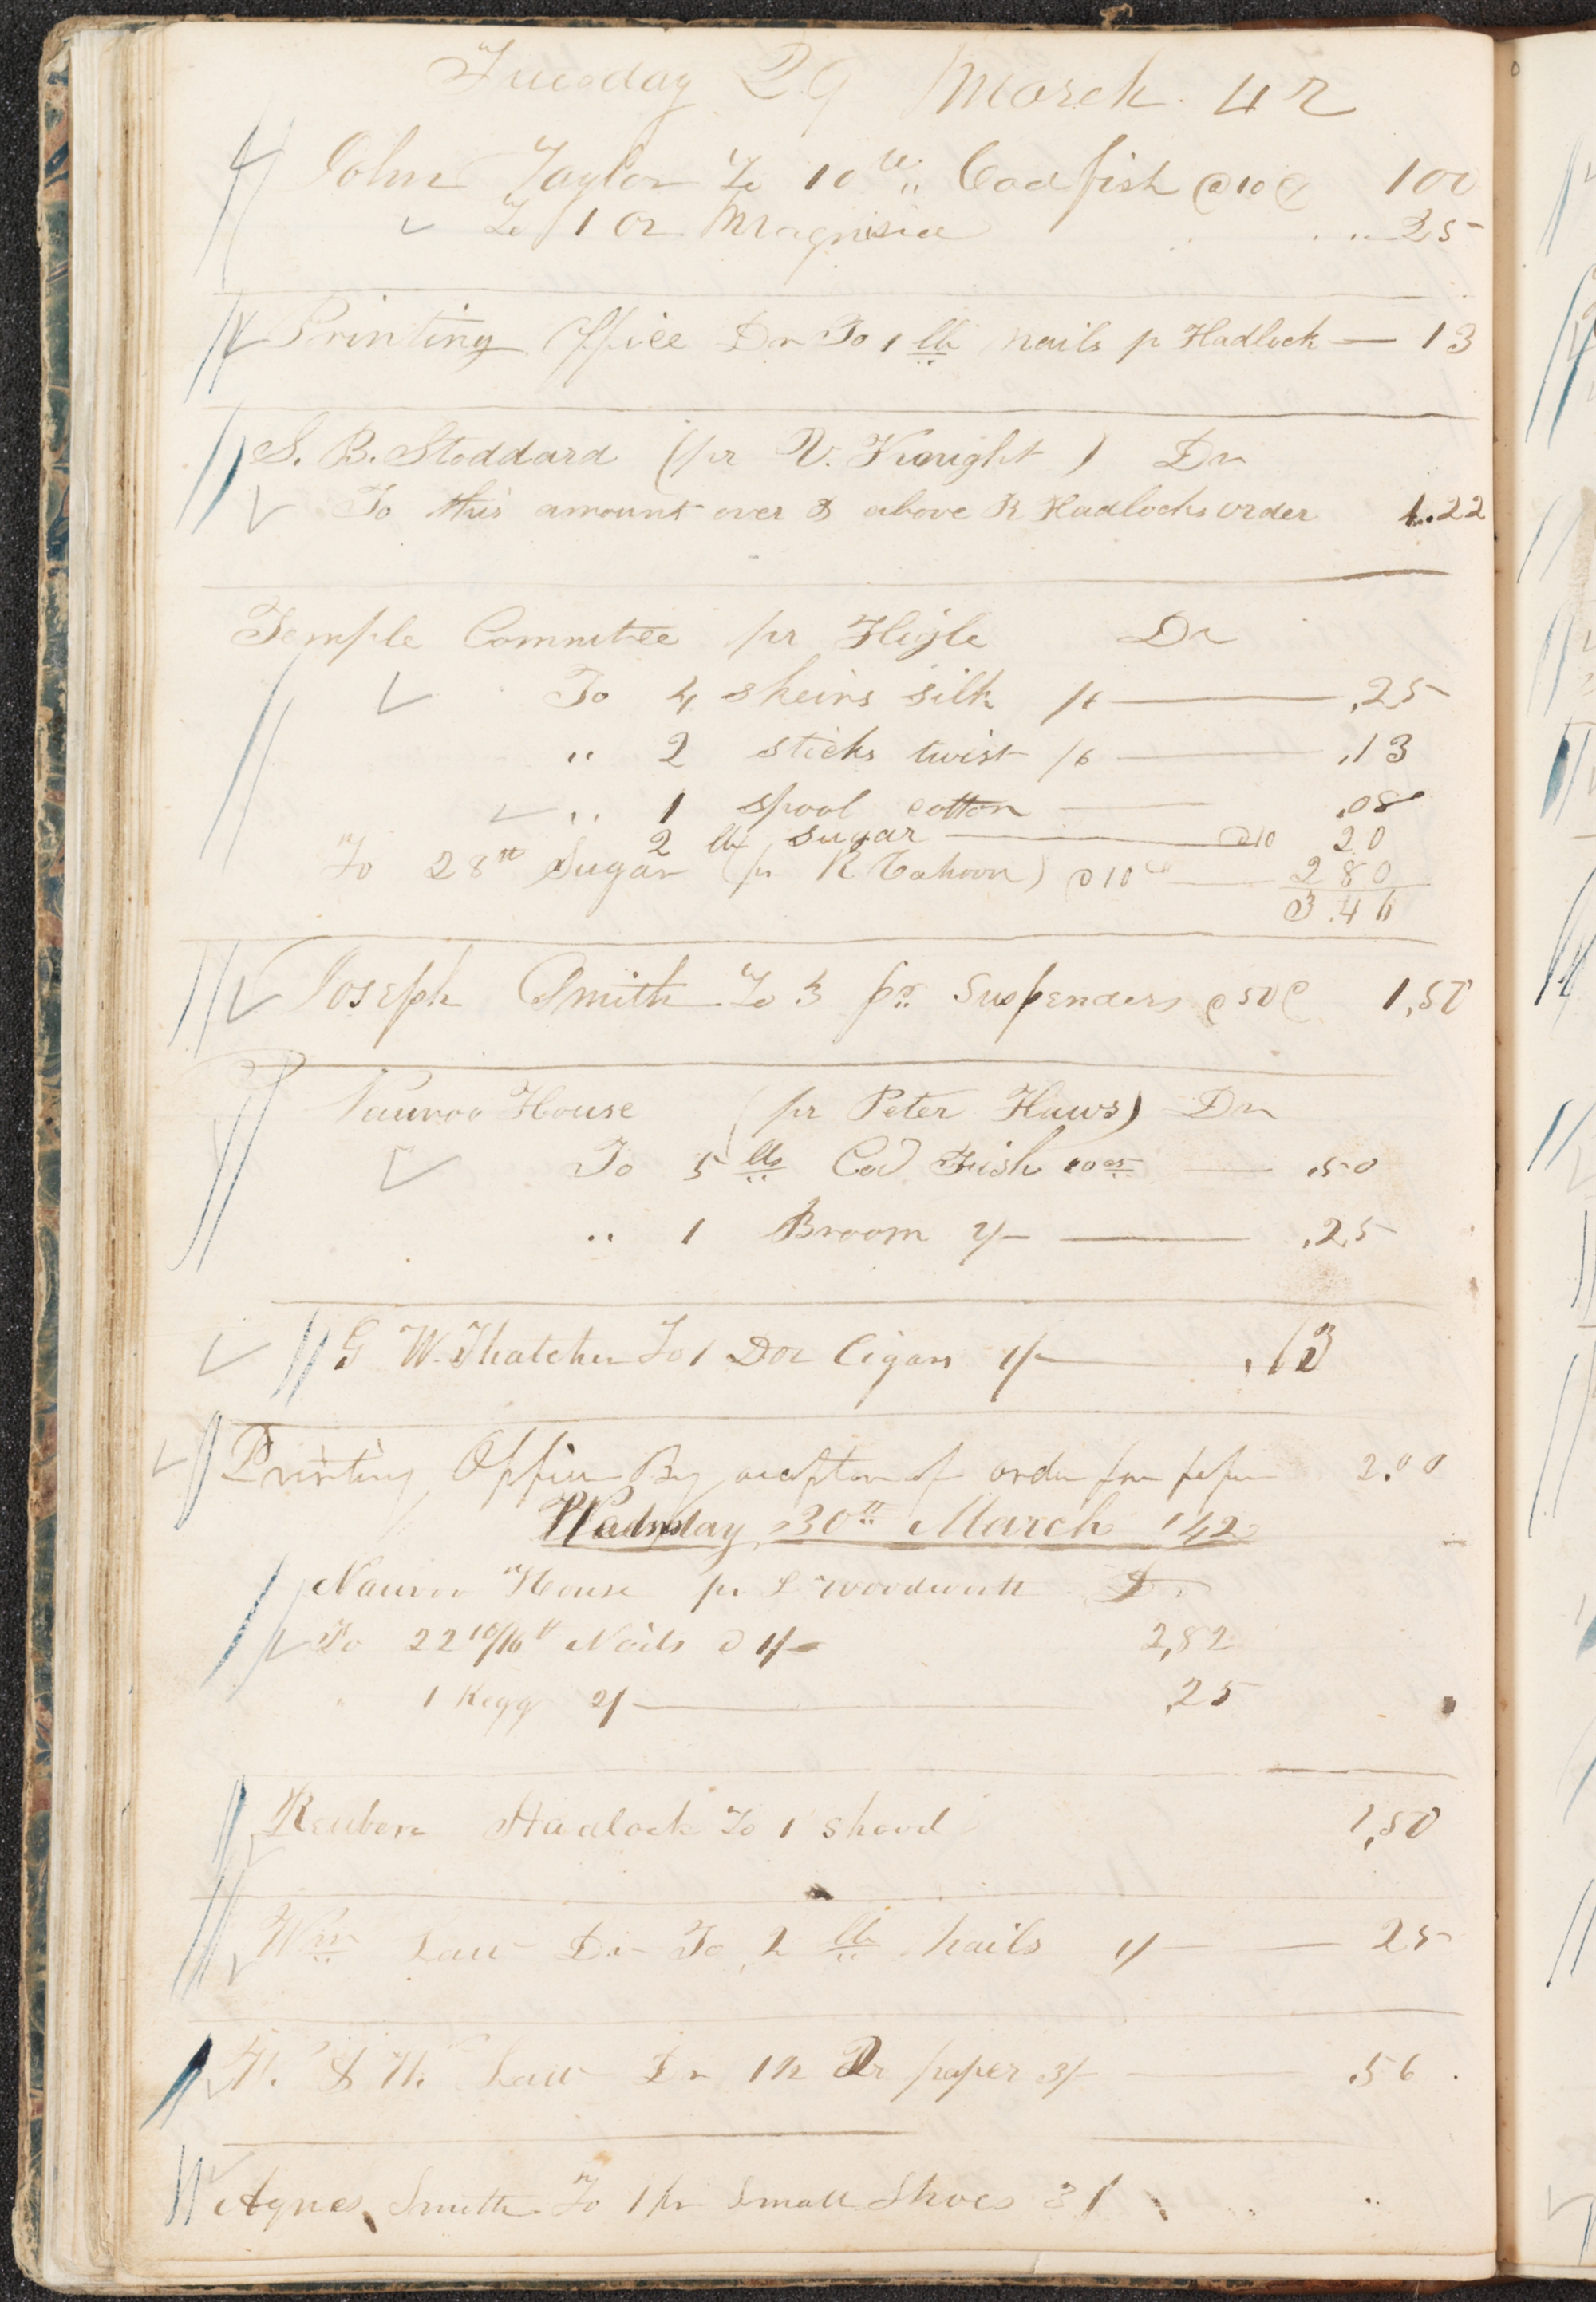 Tuesday 29 March 42
John Taylor To 10 lb Codfish @ 10 c 100
To 1 Oz Magnisia 25
Printing Office Dr To 1 lb nails pr Hadlock — 13
S. B. Stoddard (pr V. Knight) Dr
To this amount over & above R Hadlocks order 1.22
Temple Committee pr Higbe Dr
To 4 skeins silk /6 — .25
" 2 sticks twist /6 — .13
" 1 spool cotton — .08
2 lb sugar — @10 20
To 28 lb Sugar (pr R Cahoon) @ 10 cts — 280
3.46
Joseph Smith To 3 pr Suspenders @ 50 c 1,50
Nauvoo House (pr Peter Haws) Dr
To 5 lbs Cod Fish 10 cts — .50
" 1 Broom 2/– — .25
G W. Thatcher To 1 Doz Cigars 1/– — .13
Printing Office By acception of order for paper 2.00
Wednsday 30th March '42
Nauvoo House pr L Woodworth Dr
To 22 10/16 lb Nails @ 1/– 2,82
" 1 Kegg 2/– — .25
Reuben Hadlock To 1 shovel 1,50
Wm Law Dr To 2 lb nails 1/– — 25
W. & W. Law Dr 1 1/2 Qr paper 3/– — .56
Agnes Smith To 1 pr Small Shoes 3/